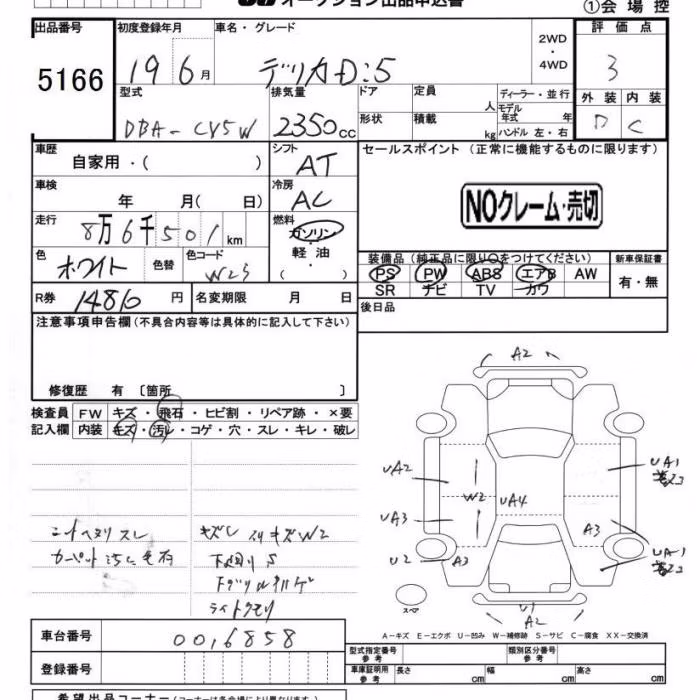 オークション出品申込書
①会場控
出品番号
5166
初度登録年月
19 6月
車名・グレード
デリカD:5
2WD
・
4WD
評価点
3
型式
DBA-CV5W
排気量
2350cc
ドア
定員
人
ディーラー・並行
モデル年式 年
外装 内装
D C
形状
積載
kg
ハンドル 左・右
車歴
自家用・( )
シフト
AT
セールスポイント(正常に機能するものに限ります)
車検
年 月( 日)
冷房
AC
NOクレーム・売切
走行
8万6千501km
燃料
ガソリン
軽油
・
( )
色
ホワイト
色替
色コード
W23
装備品(純正品に限り○をつけてください)
PS PW ABS エアB AW
SR ナビ TV カワ
新車保証書
有・無
R券
14810円
名変期限 月 日
後日品
注意事項申告欄(不具合内容等は具体的に記入して下さい)
修復歴 有 〔箇所 〕
検査員
記入欄
FW キズ・飛石・ヒビ割・リペア跡・×要
内装 キズ・汚レ・コゲ・穴・スレ・キレ・破レ
A2
UA2
W2
UA4
UA1
UA3
A3
U2
A3
UA1
U1
A2
スペア
シートヘタリ スレ
キズ W2
下廻り S
ライトクモリ
車台番号
0016858
登録番号
A-キズ E-エクボ U-凹み W-補修跡 S-サビ C-腐食 XX-交換済
型式指定番号
参考
類別区分番号
参考
車庫証明用
参考
長さ cm
幅 cm
高さ cm
希望出品コーナー(コーナーは各会場により異なります)